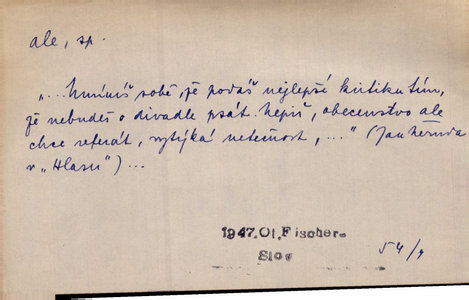 ale, sp.
„...umíníš sobě, že podáš nejlepší kritiku tím,
že nebudeš o divadle psát. Nepiš, obecenstvo ale
chce referát, vytýká netečnost, ..." (Jan Neruda
v „Hlasu") ...
1947. Ot. Fischer-
Slov
54/